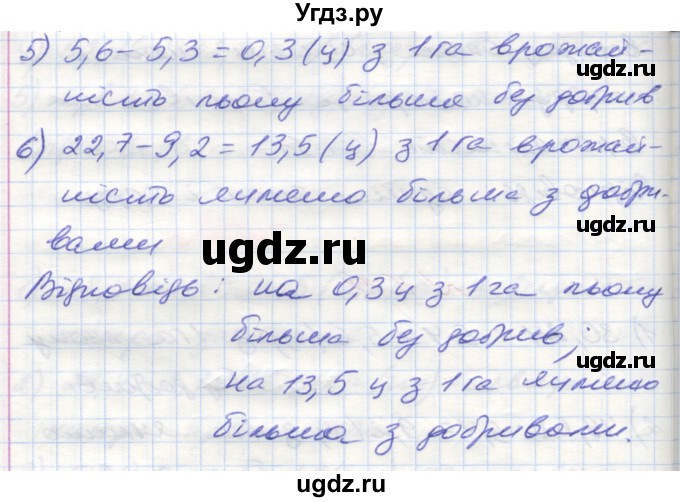 Угдз.ру
5) 5,6 – 5,3 = 0,3 (ц) з 1 га врожай-
ugdz.ru
ність льону більша без добрив
6) 22,7 – 9,2 = 13,5 (ц) з 1 га врожай-
ugdz.ru
ність ячменю більша з добри-
вами
ugdz.ru
ugdz.ru
Відповідь: на 0,3 ц з 1 га льону
більша без добрив;
ugdz.ru
на 13,5 ц з 1 га ячменю
більша з добривами.
ugdz.ru